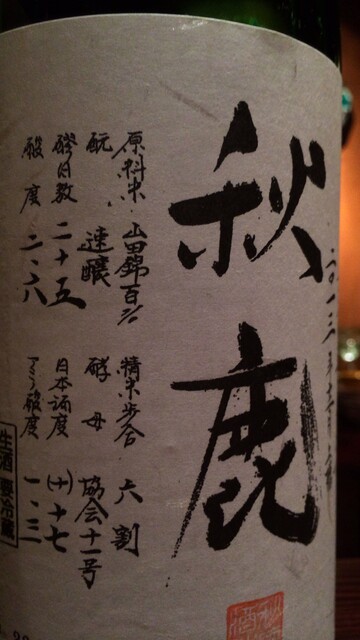 秋鹿
原料米 山田錦百%
精米歩合 六割
酛 速醸
酵母 協会十一号
醪日数 二十五
日本酒度 (+)十七
酸度 二、六
アミノ酸度 一、三
生酒 要冷蔵